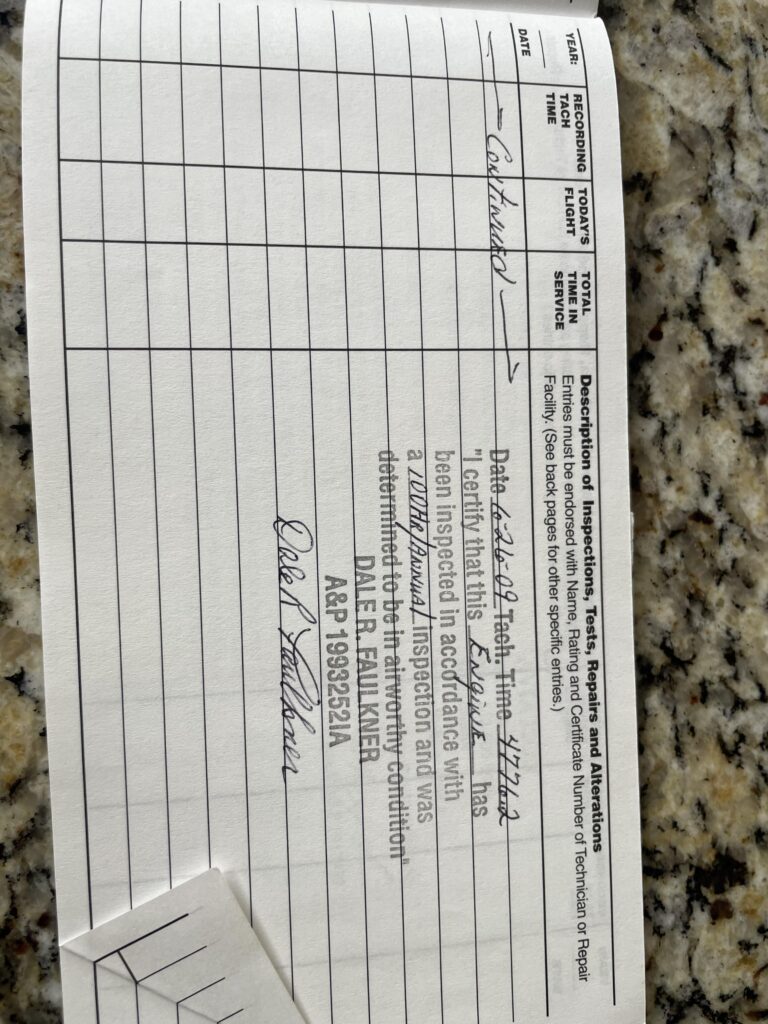 YEAR:
DATE
RECORDING TACH TIME
TODAY'S FLIGHT
TOTAL TIME IN SERVICE
Description of Inspections, Tests, Repairs and Alterations
Entries must be endorsed with Name, Rating and Certificate Number of Technician or Repair
Facility. (See back pages for other specific entries.)
Continued
Date 6-26-09 Tach. Time 4776.2
"I certify that this ENGINE has
been inspected in accordance with
a 100HR/ANNUAL inspection and was
determined to be in airworthy condition"
DALE R. FAULKNER
A&P 1993252IA
Dale R Faulkner